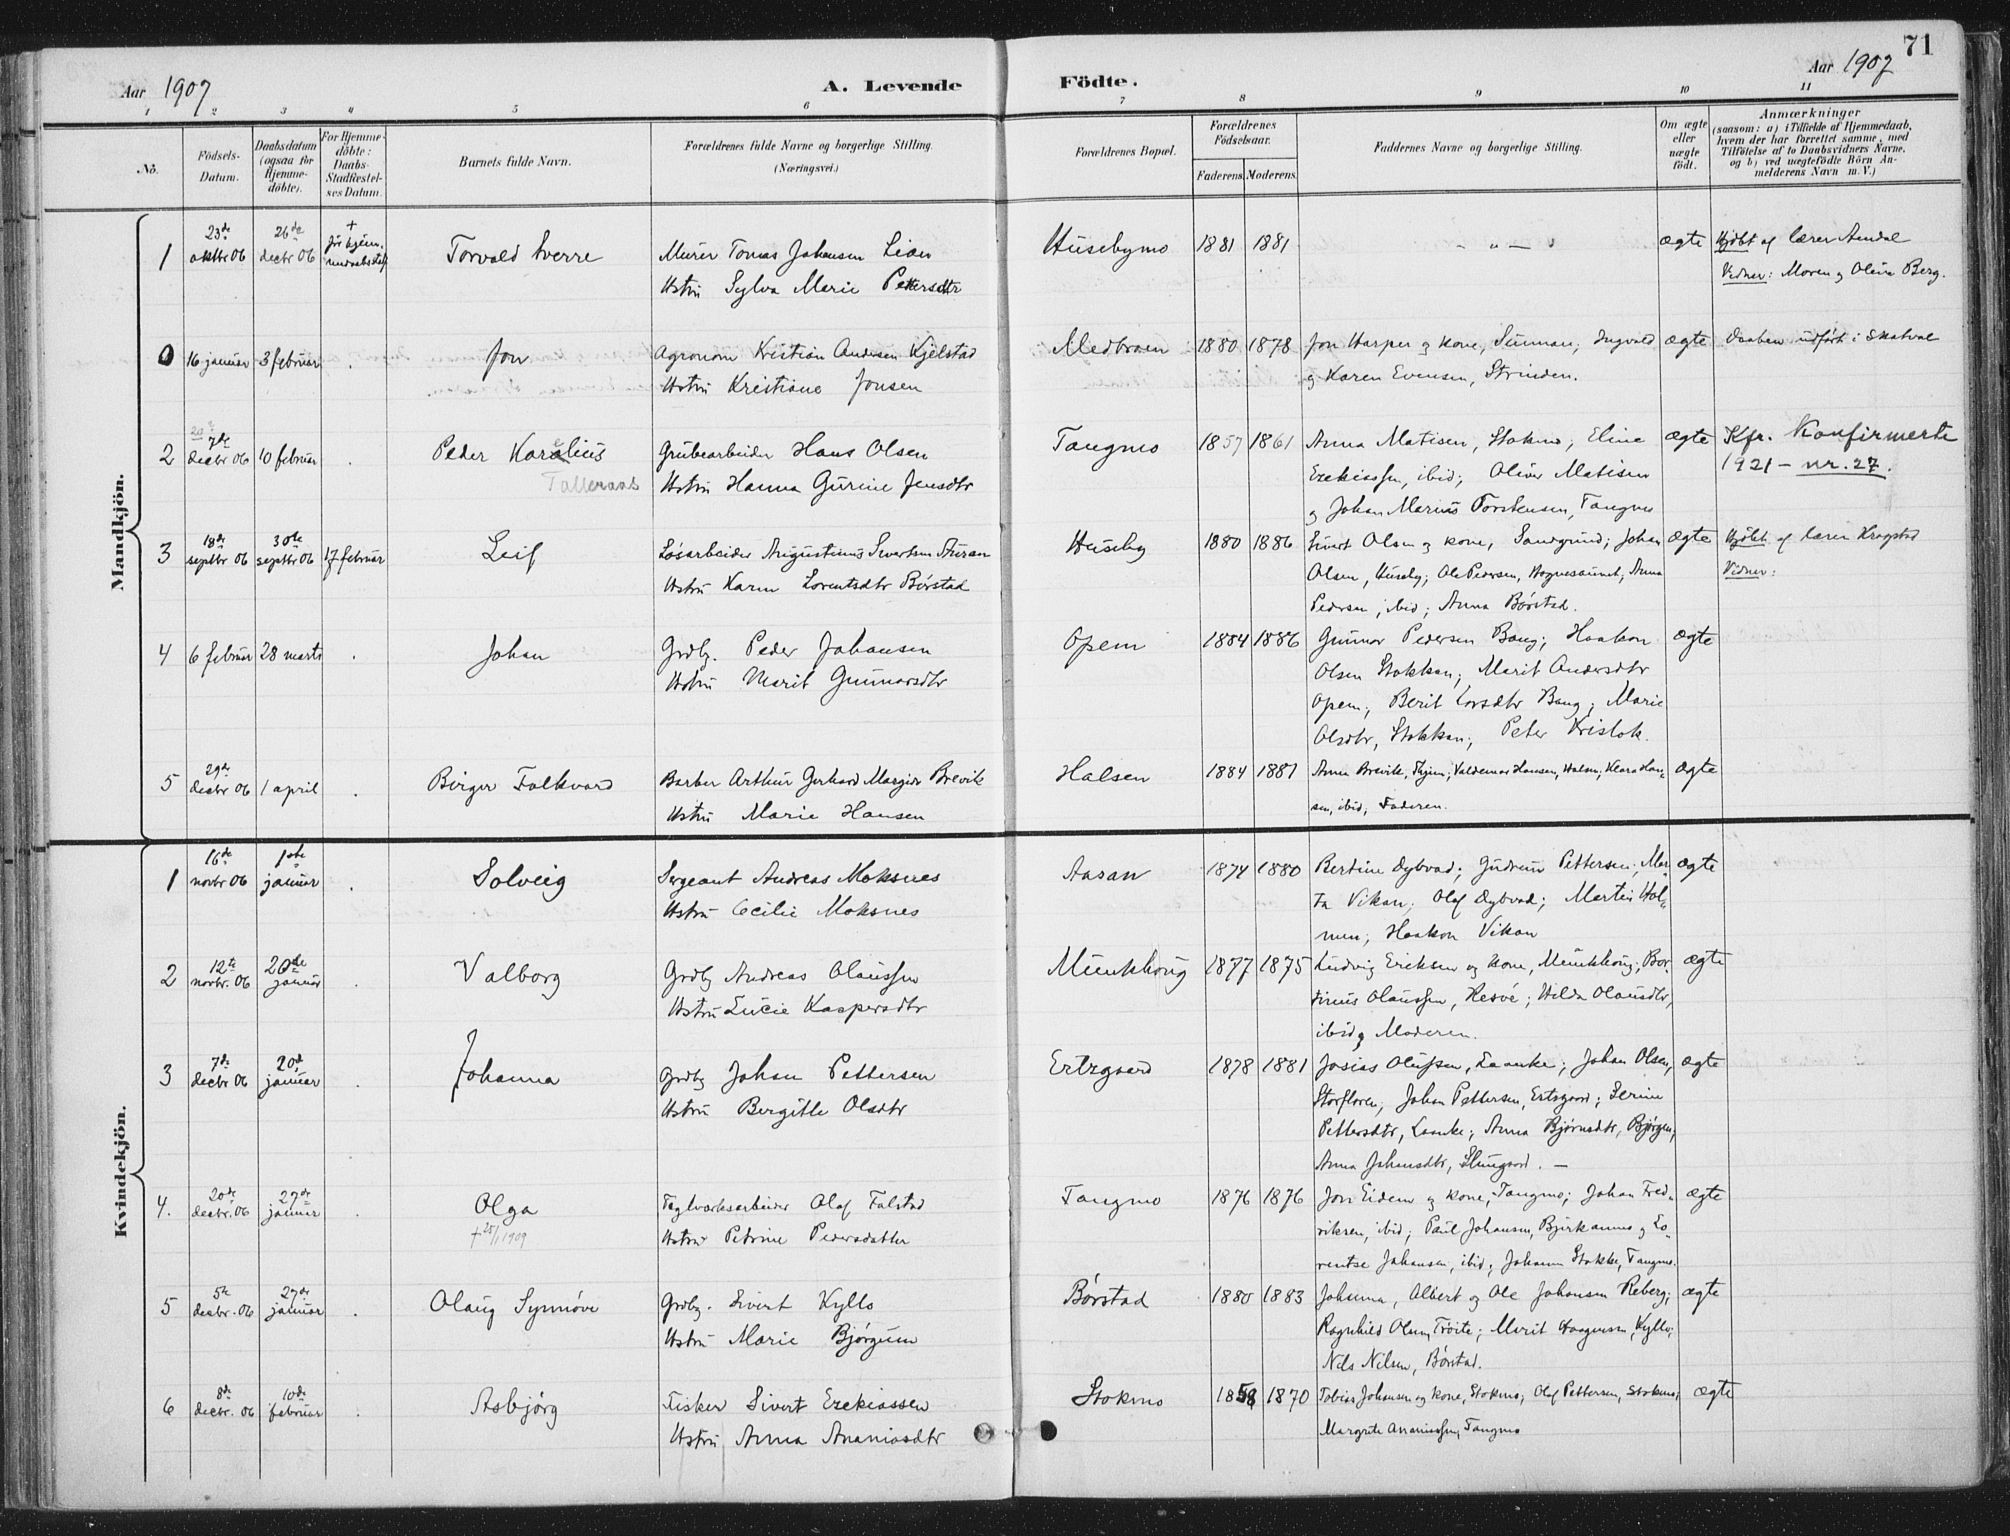 71
Aar 1907
A. Levende
Födte.
Aar 1907
1 2 3 4 5 6 7 8 9 10 11
No.
Födsels-
Datum.
Daabsdatum
(ogsaa for
Hjemme-
döbte).
For Hjemme-
döbte:
Daabs-
Stadfæstel-
ses Datum.
Barnets fulde Navn.
Forældrenes fulde Navne og borgerlige Stilling.
(Næringsvei.)
Forældrenes Bopæl.
Forældrenes
Födselsaar.
Faderens. Moderens.
Faddernes Navne og borgerlige Stilling.
Om ægte
eller
uægte
födt.
Anmærkninger
(saasom: a) i Tilfælde af Hjemmedaab,
hvem der har forrettet samme, med
Tilföielse af to Daabsvidners Navne,
og b) ved uægtefödte Börn An-
melderens Navn m. V.)
Mandkjön.
1 23de oktbr 06 26de decbr 06 + før hjem. Torvald Sverre
Murer Tomas Johansen Lian
Hstru Sylva Marie Pettersdtr
Husebymo 1881 1881 - " - " ægte
Hjdbt af lærer Aendal
Vidner: Moren og Oline Berg.
0 16 januar 3 februar . Jon
Agronom Kristian Andersen Kjelstad
Hstru Kristiane Jonsen
Medbroen 1880 1878
Jon Harper og kone, Sunnan; Ingvald
og Karen Evensen, Strinden.
ægte Daaben udført i Skatval
2 7de decbr 06 10 februar . Peder Karelius
Talleraas
Grubearbeider Hans Olsen
Hstru Hanna Gurine Jensdtr
Tangmo 1857 1861
Anna Matisen, Stokmo; Eline
Ezekiassen, ibid; Oliver Matisen
og Johan Marius Torstensen, Tangmo
ægte Kfr. Konfirmerte
1921 - nr. 27.
3 18de septbr 06 30te septbr 06 17 februar Leif
Løsarbeider Augustinus Sivertsen Auran
Hstru Karen Lorentsdtr Børstad
Huseby 1880 1886
Sivert Olsen og kone, Sandgrund; Johan
Olsen, Huseby; Ole Pedersen, Hognesaunet; Anna
Pedersen, ibid; Anna Børstad.
ægte Hjdbt af lærer Kragstad
Vidner:
4 6 februar 28 marts . Johan
Grdbr. Peder Johansen
Hstru Marit Gunnarsdtr
Opem 1884 1886
Gunnar Pedersen Bang; Haakon
Olsen Stokkan; Marit Andersdtr
Opem; Berit Larsdtr Bang; Marie
Olsdtr, Stokkan; Peter Kristok.
ægte
5 29de decbr 06 1 april . Birger Falkvard
Barber Arthur Gerhard Margido Brevik
Hstru Marie Hansen
Halsen 1884 1881
Anna Brevik, Thjem; Valdemar Hansen, Halsen, Klara Han-
sen, ibid; Faderen.
ægte
Kvindekjön.
1 16de novbr 06 1ste januar . Solveig
Sergeant Andreas Moksnes
Hstru Cecilie Moksnes
Aasan 1874 1880
Bertine Dybvad; Gudrun Pettersen; Mar-
ta Vikan; Olaf Dybvad; Martin Hol-
men; Haakon Vikan
ægte
2 12te novbr. 06 20de januar . Valborg
Grdbr Andreas Olaussen
Hstru Lucie Kaspersdtr
Munkhaug 1877 1875
Ludvig Eriksen og kone, Munkhaug; Bor-
tinus Olaussen, Resve; Hilda Olausdtr,
ibid og Moderen.
ægte
3 7de decbr 06 20de januar . Johanna
Grdbr Johan Pettersen
Hstru Bergitte Olsdtr
Ertzgaard 1878 1881
Josias Olufsen, Laanke; Johan Olsen,
Storfloren; Johan Pettersen, Ertsgaard; Serine
Pettersdtr, Laanke; Anna Bjørnsdtr, Bjørgen;
Anna Johansdtr, Slungaard. -
ægte
4. 20de decbr. 06 27de januar . Olga
+ 25/1 1909
Teglværksarbeider Olaf Falstad
Hstru Petrine Pedersdatter
Tangmo 1876 1876
Jon Eidem og kone, Tangmo; Johan Fred-
riksen, ibid; Paul Johansen, Bjerkanmo og Lo-
rentse Johansen, ibid; Johanna Stokke, Tangmo.
ægte
5 5te decbr. 06 27de januar . Olaug Synnøve
Grdbr. Sivert Kyllo
Hstru Marie Bjørgum
Børstad 1880 1883
Johanna, Albert og Ole Johansen Reberg;
Ragnhild Olsen, Trøite; Marit Haagensen, Kyllo;
Nils Nilsen, Børstad.
ægte
6 8de decbr. 06 10de februar . Asbjørg
Fisker Sivert Ezekiassen
Hstru Anna Ananiasdtr
Stokmo 1858 1870
Tobias Johansen og kone, Stokmo; Olaf Pettersen, Stokmo;
Margrete Ananiassen, Tangmo
ægte